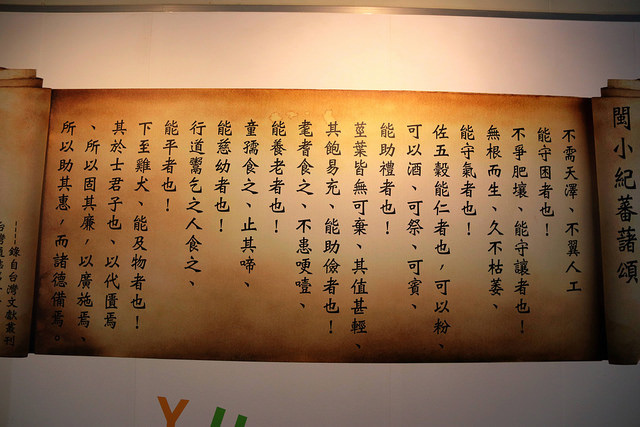 閩小紀蕃藷頌
不需天澤、不翼人工
能守困者也！
不爭肥壤、能守讓者也！
無根而生、久不枯萎、
能守氣者也！
佐五穀能仁者也，可以粉、
可以酒、可祭、可賓、
能助禮者也！
莖葉皆無可棄、其值甚輕、
其飽易充、能助儉者也！
耄者食之、不患哽噎、
能養老者也！
童孺食之、止其啼、
能慈幼者也！
行道鬻乞之人食之、
能平者也！
下至雞犬、能及物者也！
其於士君子也、以代匱焉
、所以固其廉，以廣施焉、
所以助其惠，而諸德備焉。
---錄自台灣文獻叢刊
X U